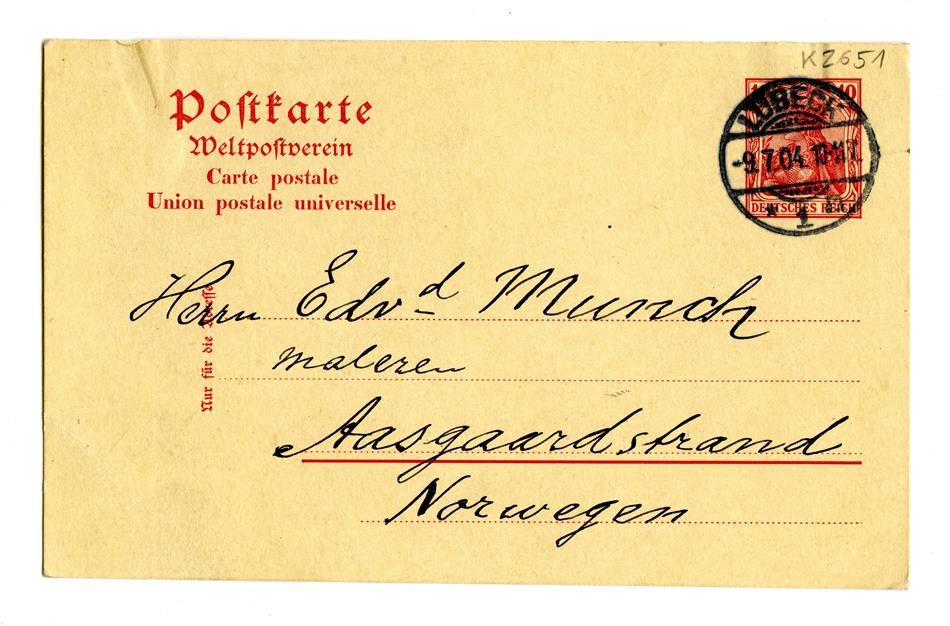 K2651
Poſtkarte
Weltpoſtverein
Carte postale
Union postale universelle
10
LÜBECK
-9.7.04. 10-11
1
DEUTSCHES REICH
Nur für die Adreſſe
Herrn Edvd Munch
maleren
Aasgaardstrand
Norwegen